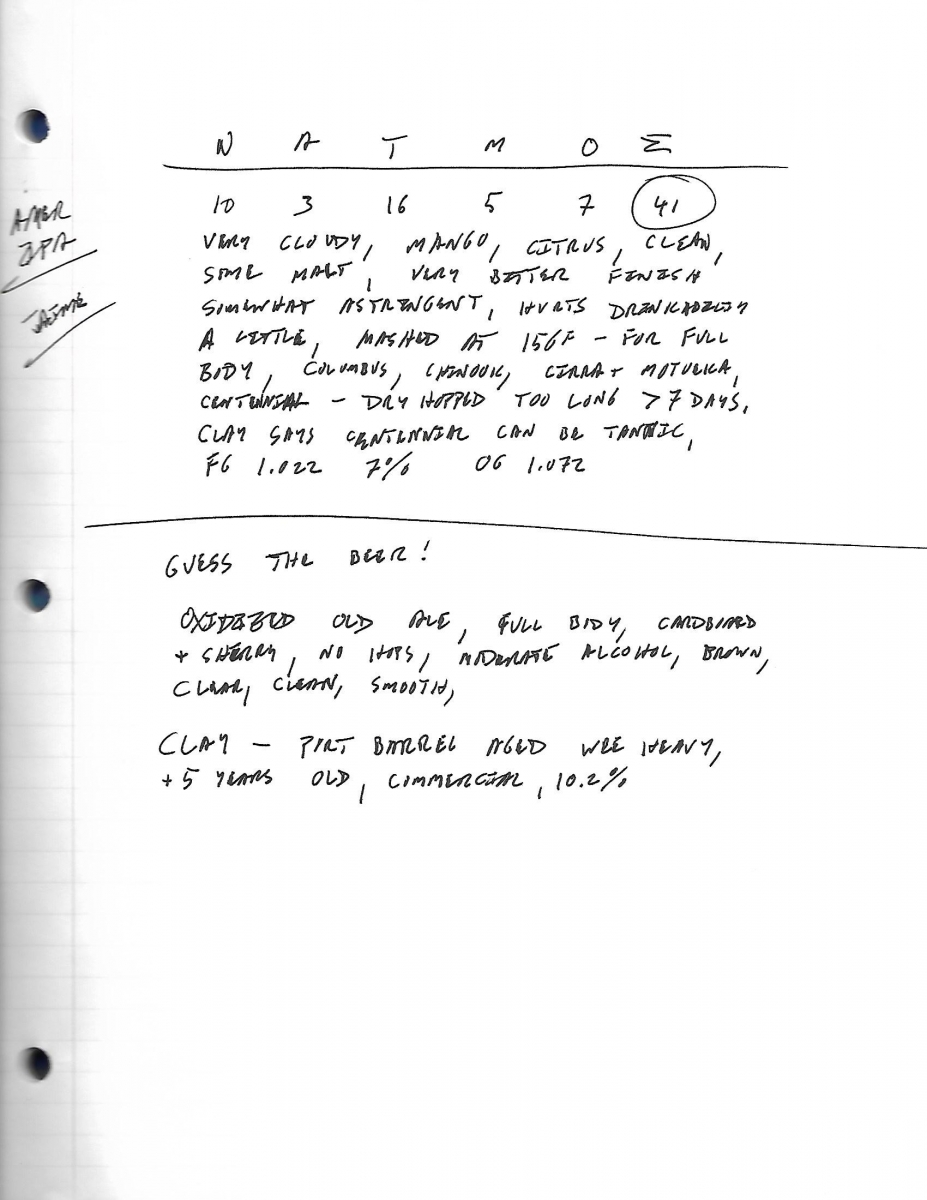 N A T M O Σ
10 3 16 5 7 41
AMER
IPA
JAIME
VERY CLOUDY, MANGO, CITRUS, CLEAN,
SOME MALT, VERY BITTER FINISH
SOMEWHAT ASTRINGENT, HURTS DRINKABILITY
A LITTLE, MASHED AT 156F - FOR FULL
BODY, COLUMBUS, CHINOOK, CITRA + MOTUEKA,
CENTENNIAL - DRY HOPPED TOO LONG > 7 DAYS,
CLAY SAYS CENTENNIAL CAN BE TANNIC,
FG 1.022 7% OG 1.072
GUESS THE BEER!
OXIDIZED OLD ALE, FULL BODY, CARDBOARD
+ SHERRY, NO HOPS, MODERATE ALCOHOL, BROWN,
CLEAR, CLEAN, SMOOTH,
CLAY - PORT BARREL AGED WEE HEAVY,
+ 5 YEARS OLD, COMMERCIAL, 10.2%